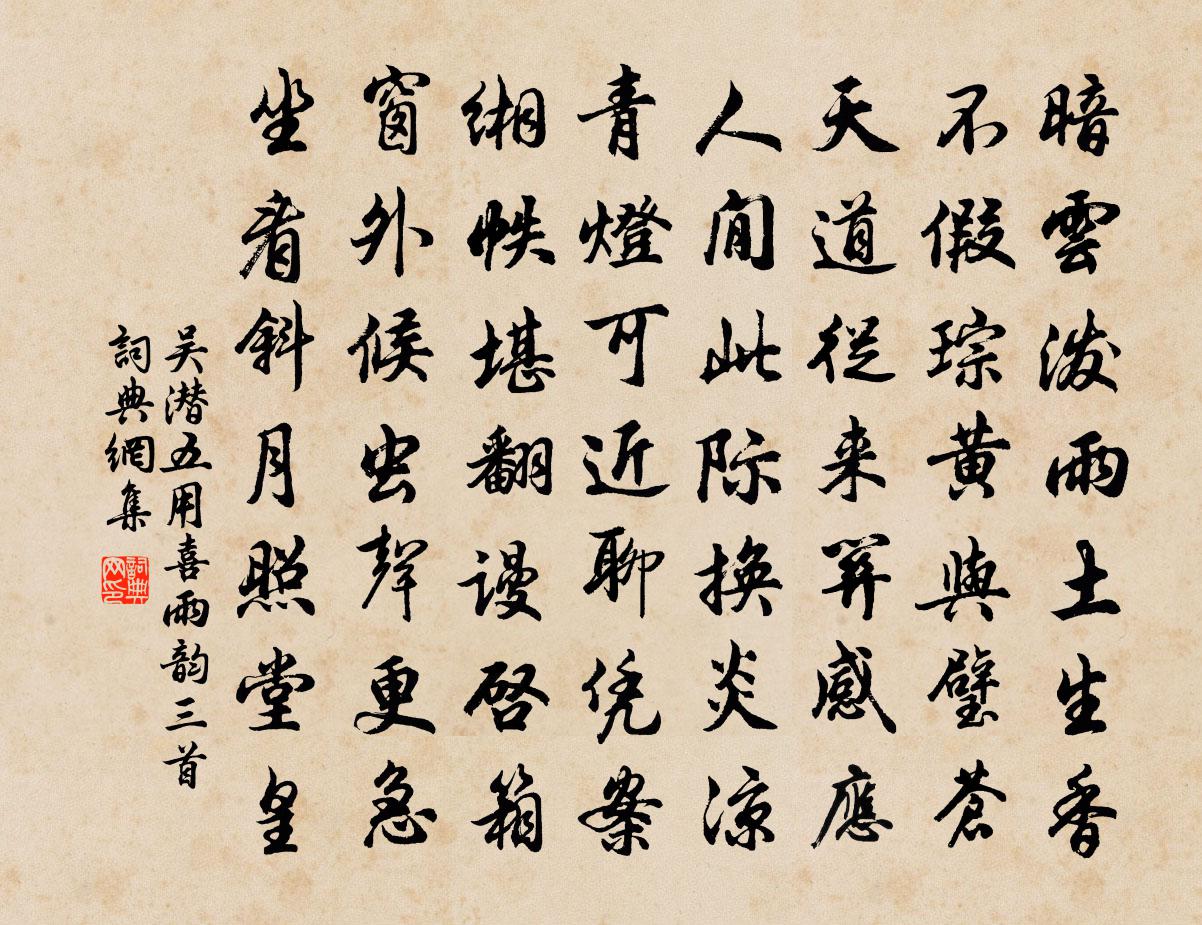 暗雲泼雨土生香
不假琮黄與璧蒼
天道従来昇感應
人间此际換炎涼
青燈可近聊凭案
缃帙堪翻谩啓箱
窗外候虫聲更急
坐看斜月照堂皇
吴潜五用喜雨韵三首
詞典網集
詞典网印